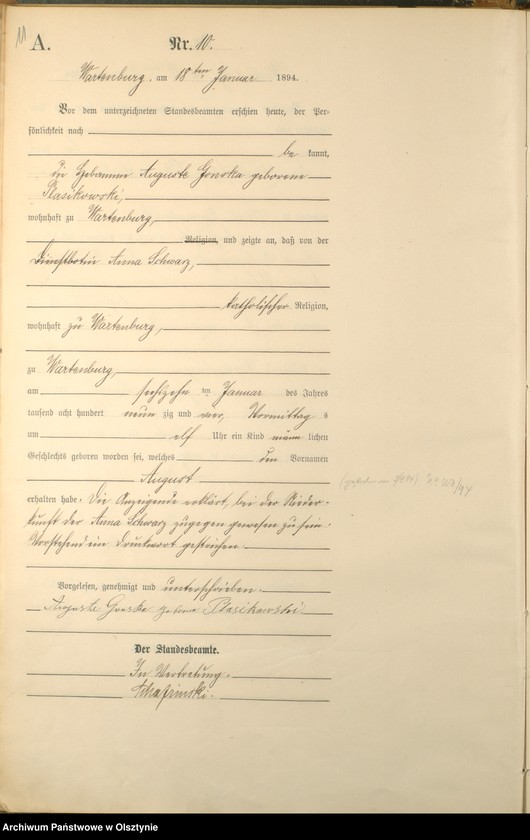 11
A.
Nr. 10.
Wartenburg, am 18ten Januar 1894.
Vor dem unterzeichneten Standesbeamten erschien heute, der Per-
sönlichkeit nach
be kannt,
die Hebamme Auguste Gonska geborene
Plasikowski,
wohnhaft zu Wartenburg,
Religion, und zeigte an, daß von der
Dienstbotin Anna Schwarz,
katholischer Religion,
wohnhaft zu Wartenburg,
zu Wartenburg,
am sechszehn ten Januar des Jahres
tausend acht hundert neun zig und vier, Vormittag s
um elf Uhr ein Kind männ lichen
Geschlechts geboren worden sei, welches den Vornamen
August
erhalten habe. Die Anzeigende erklärt, bei der Nieder-
kunft der Anna Schwarz zugegen gewesen zu sein.
Vorstehend ein Druckwort gestrichen.
Vorgelesen, genehmigt und unterschrieben.
Auguste Gonska geborne Plasikowski
Der Standesbeamte.
In Vertretung.
Archiwum Państwowe w Olsztynie